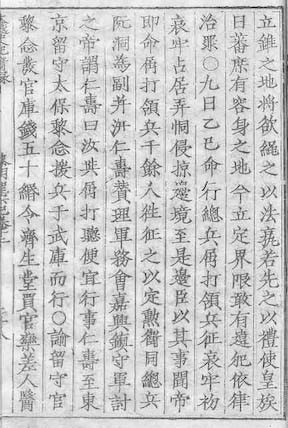 立錐之地將欲繩之以法孰若先之以禮使皇族
日蕃庶有容身之地今立定界限敢有違犯依律
治罪○九日乙巳命行總兵冉打領兵征哀牢初
哀牢占居弄恫侵掠邊境至是邊臣以其事聞帝
即命冉打領兵千餘人徃征之以定勲衛同總兵
阮洞為副并汧仁壽賛理軍務會嘉興鎮守軍討
之帝謂仁壽曰汝與冉打聽便宜行事仁壽至東
京留守太保黎念援兵于武庫而行○諭留守官
黎念發官庫錢五十緡令濟生堂買官藥差人醫